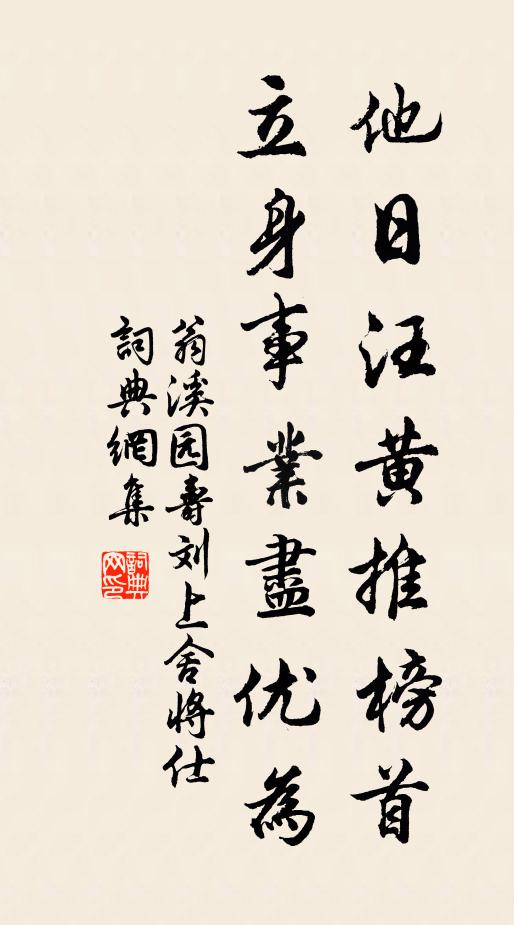 他日汪黄推榜首
立身事業盡优為
翁溪园壽刘上舍將仕
詞典網集
詞典
网印